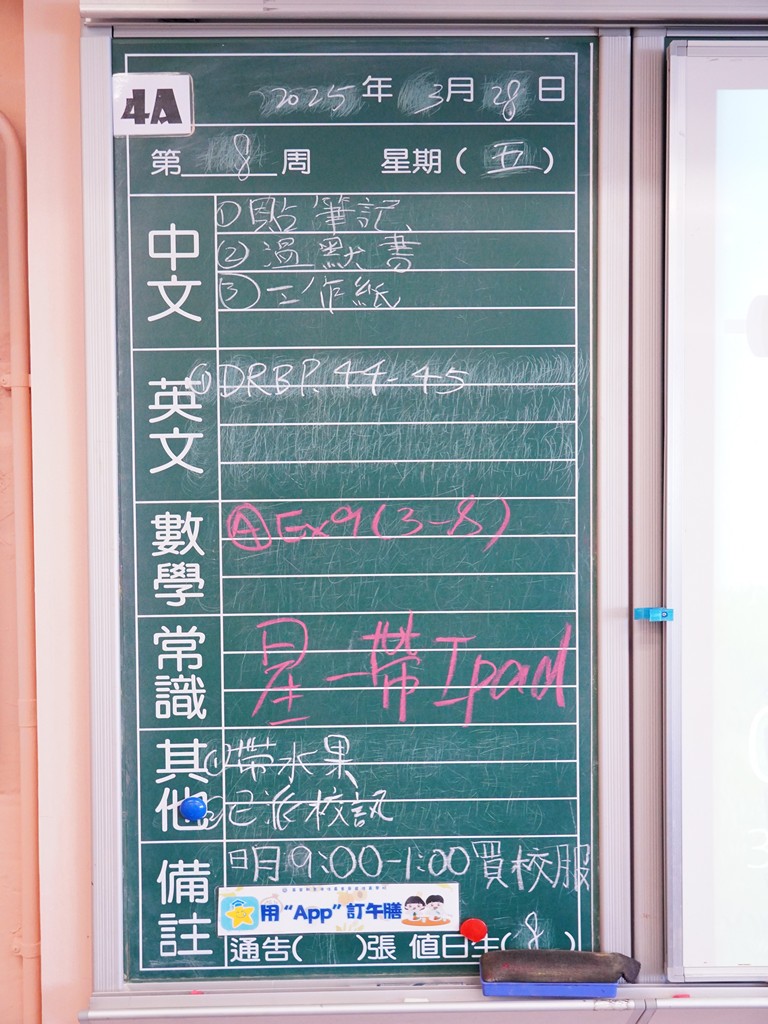 4A
2025年3月28日
第8周 星期(五)
中文
①貼筆記
②溫默書
③工作紙
英文
①DRBP.44-45
數學
ⒶEx9(3-8)
常識
星一帶Ipad
其他
①帶水果
②已派校訊
備註
明9:00-1:00買校服
用“App”訂午膳
通告( )張 值日生(8)